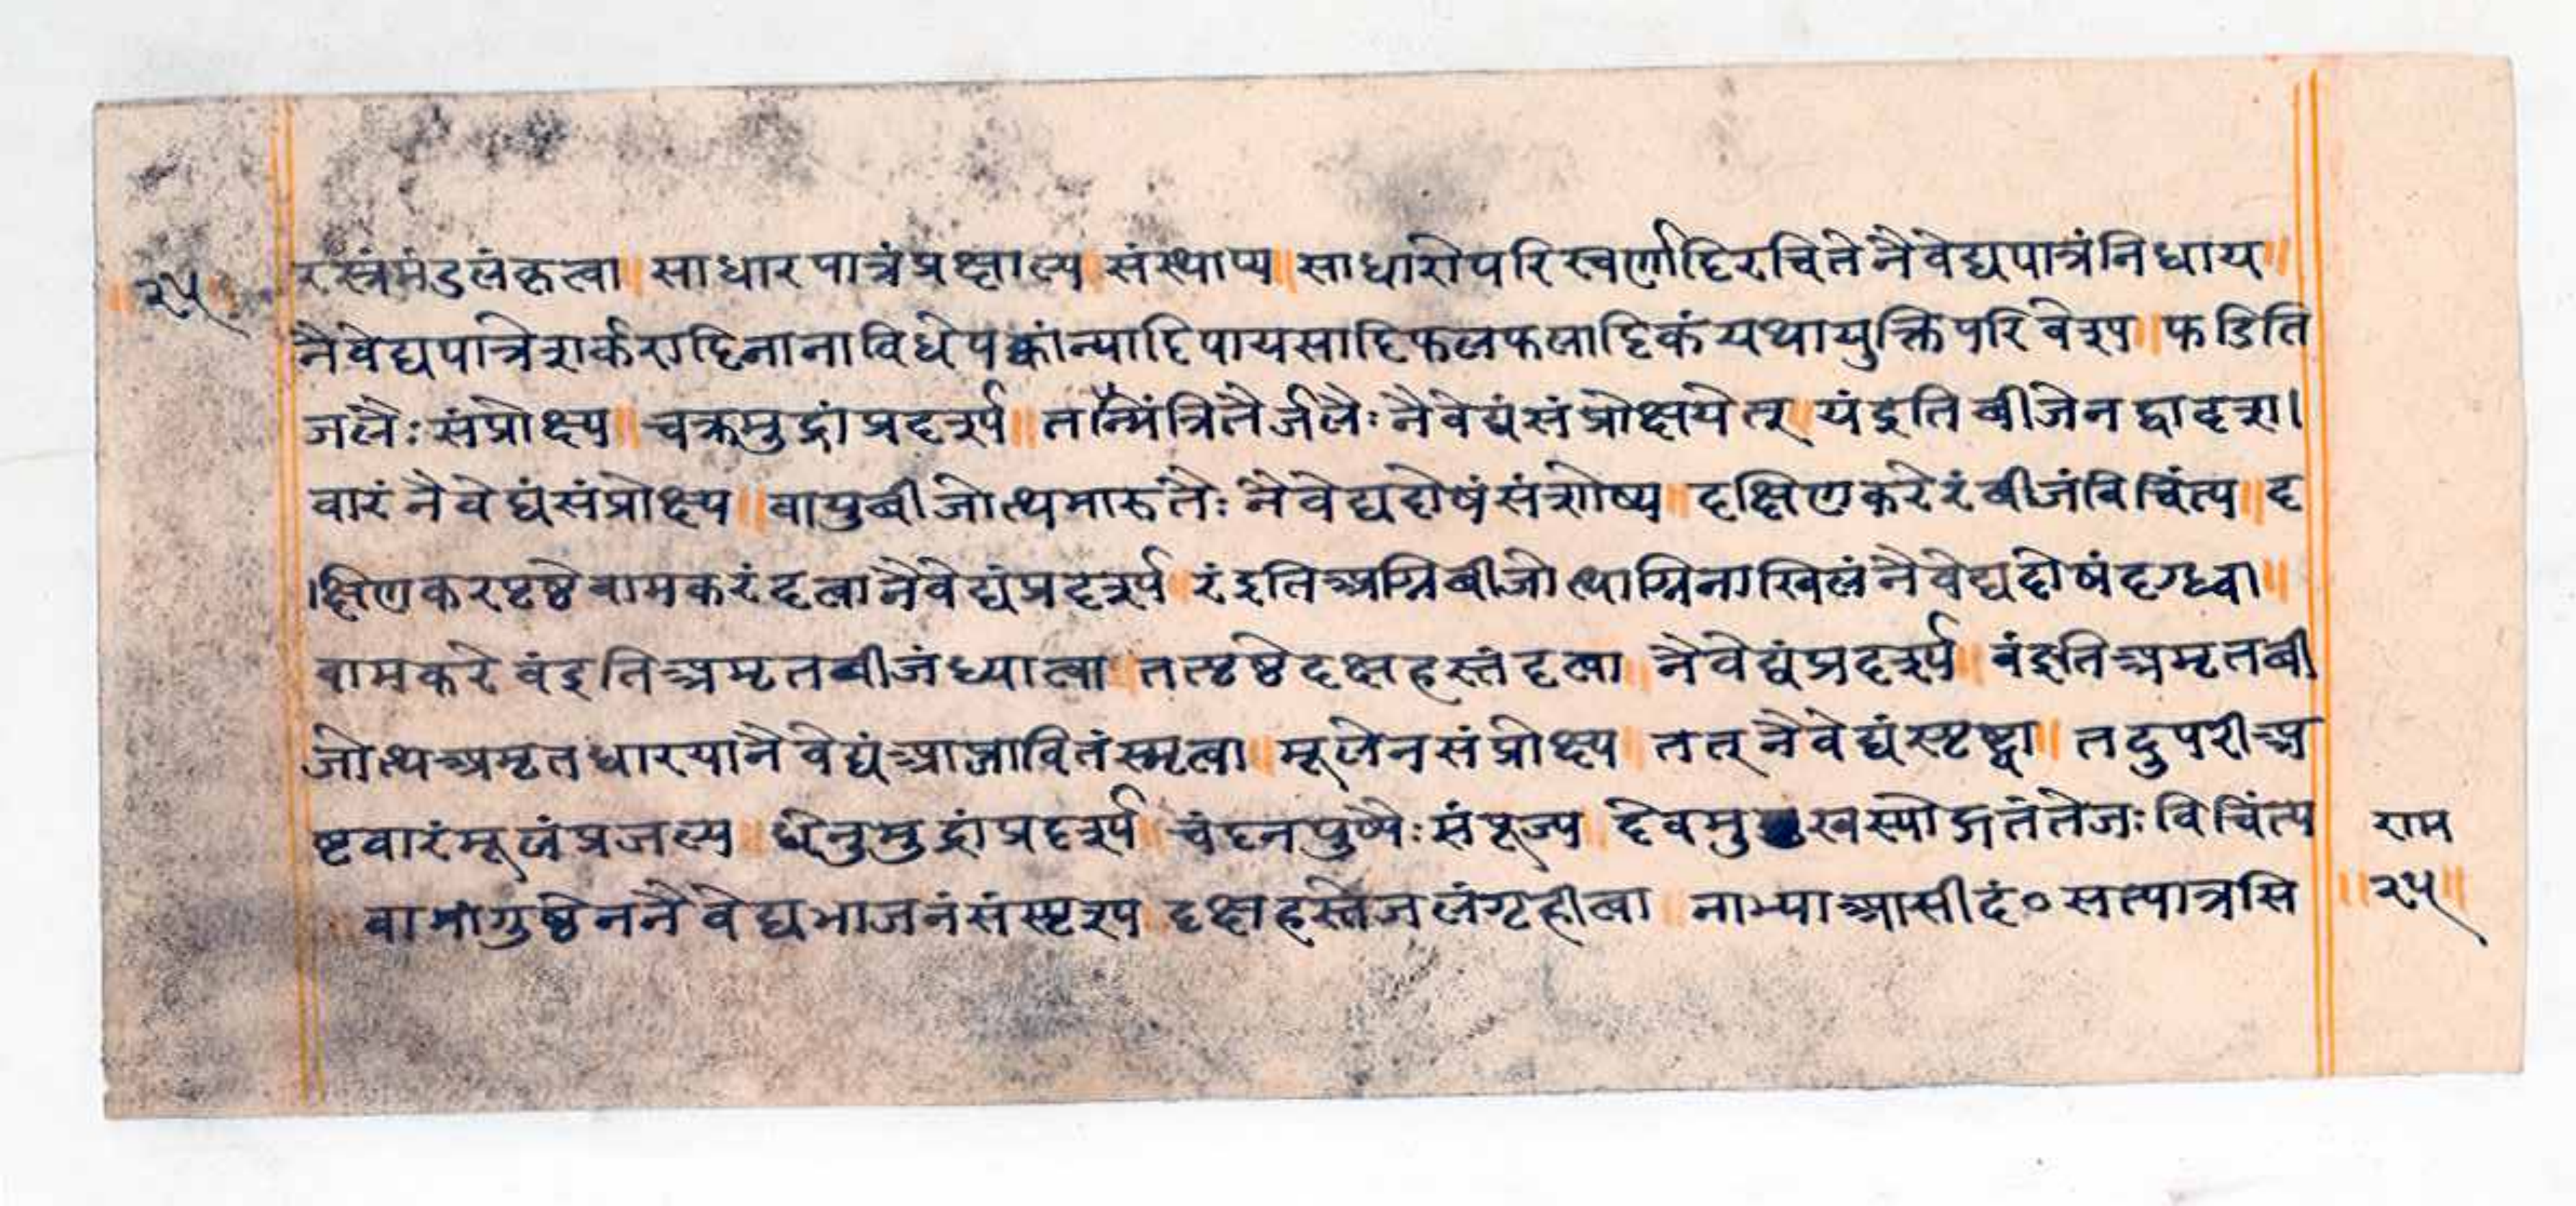 ॥२५॥ रस्त्रंमंडलंकृत्वा॥साधारपात्रंप्रक्षाल्य॥संस्थाप्य॥साधारोपरिस्वर्णादिरचितेनैवेद्यपात्रंनिधाय॥
नैवेद्यपात्रेशर्करादिनानाविधेपक्वांन्यादिपायसादिफलफलादिकंयथायुक्तिपरिवेश्य॥फडिति
जलैःसंप्रोक्ष्य॥चक्रमुद्रांप्रदर्श्य॥तन्मंत्रितैर्जलैःनैवेद्यंसंप्रोक्षयेत्॥यंइतिबीजेनद्वादश।
वारंनैवेद्यंसंप्रोक्ष्य॥वायुबीजोत्थमारुतैःनैवेद्यदोषंसंशोष्य॥दक्षिणकरेरंबीजंविचिंत्य॥द
।क्षिणकरपृष्ठेवामकरंदत्वानैवेद्यंप्रदर्श्य॥रंइतिअग्निबीजोत्थाग्निनाखिलंनैवेद्यदोषंदग्ध्वा॥
वामकरेवंइतिअमृतबीजंध्यात्वा॥तत्पृष्ठेदक्षहस्तंदत्वा॥नैवेद्यंप्रदर्श्य॥वंइतिअमृतबी
जोत्थअमृतधारयानैवेद्यंआप्लावितंस्मृत्वा॥मूलेनसंप्रोक्ष्य॥तत्नैवेद्यंस्पृष्ट्वा॥तदुपरीअ
ष्टवारंमूलंप्रजल्प॥धेनुमुद्रांप्रदर्श्य॥चंदनपुष्पैःसंपूज्य॥देवमुखस्योद्गतंतेजःविचिंत्य राम
॥वामांगुष्ठेननैवेद्यभाजनंसंस्पृश्य॥दक्षहस्तेजलंगृहीत्वा॥नाभ्याआसीदं०सत्पात्रसि ॥२५॥